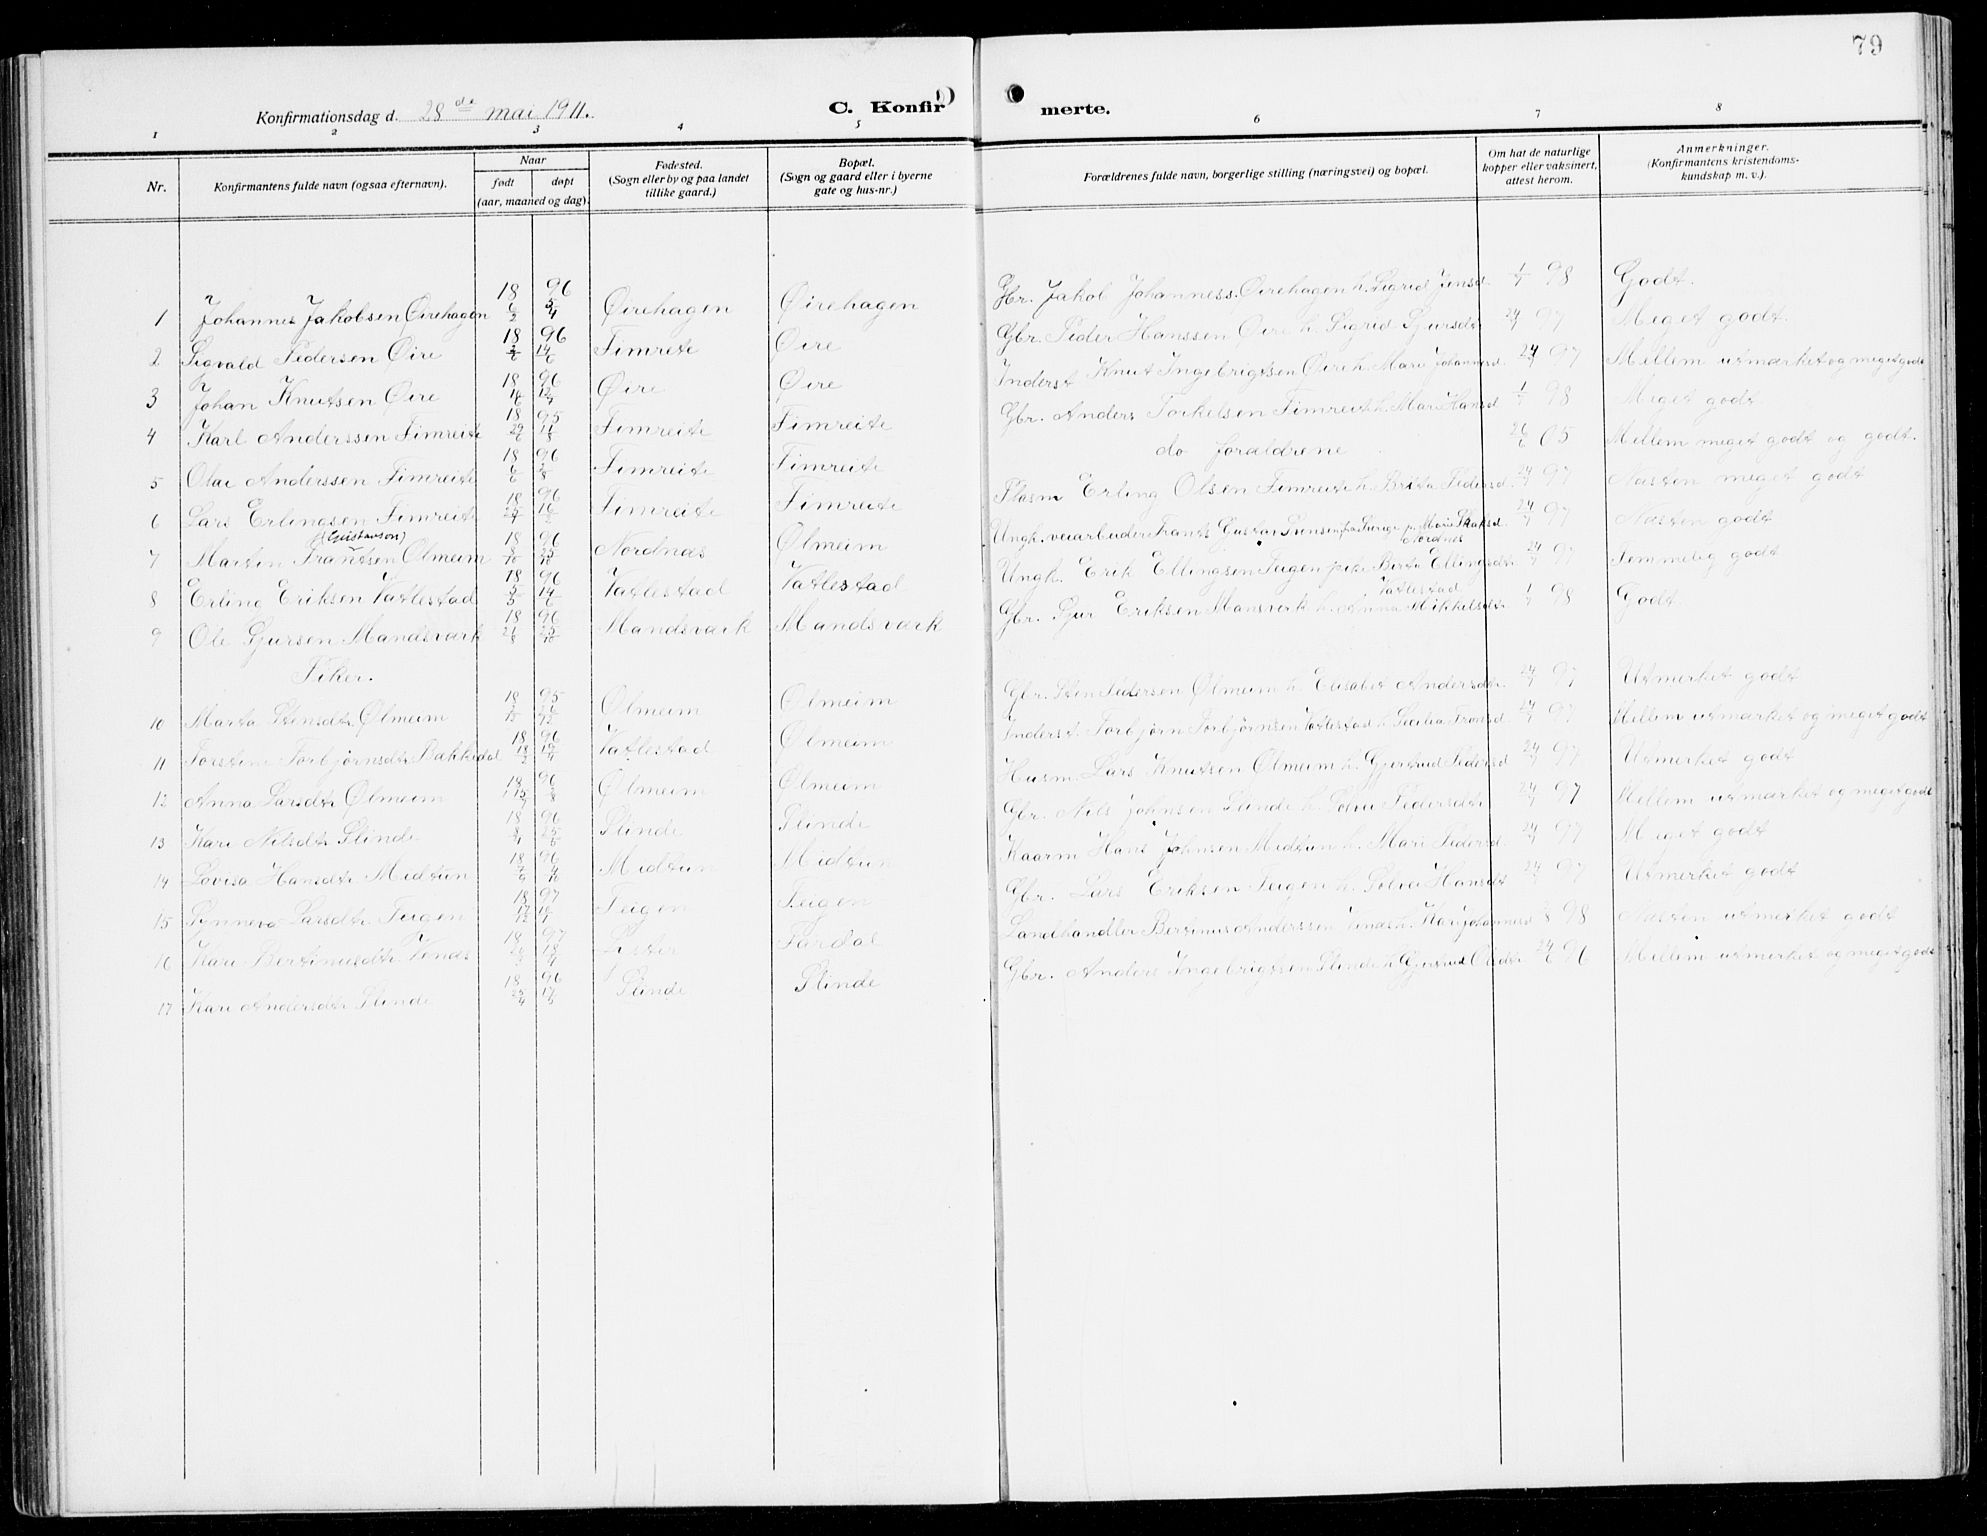 79
Konfirmationsdag d. 28de mai 1911.
C. Konfirmerte.
1 2 3 4 5 6 7 8
Nr.
Konfirmantens fulde navn (ogsaa efternavn).
Naar
født døpt
(aar, maaned og dag).
Fødested.
(Sogn eller by og paa landet
tillike gaard.)
Bopæl.
(Sogn og gaard eller i byerne
gate og hus-nr.)
Forældrenes fulde navn, borgerlige stilling (næringsvei) og bopæl.
Om hat de naturlige
kopper eller vaksinert,
attest herom.
Anmerkninger.
(Konfirmantens kristendoms-
kundskap m. v.).
1 Johannes Jakobsen Øirehagen 18 96 6/2 5/4 Øirehagen Øirehagen Gbr. Jakob Johanness. Øirehagen h. Sigrid Jensd. 1/7 98 Godt.
2 Sigvald Pedersen Øire 18 96 14/6 Fimreite Øire Gbr. Peder Hanssen Øire h. Sigrid Sjursdtr 24/7 97 Meget godt.
3 Johan Knutsen Øire 18 96 Øire Øire Inderst Knut Ingebrigtsen Øire h. Mari Johannesd. 24/7 97 Mellem utmærket og meget godt
4 Karl Anderssen Fimreite 18 95 29/6 11/8 Fimreite Fimreite Gbr. Anders Torkelsen Fimreite h. Mari Hansd 1/7 98 Meget godt
5 Olai Anderssen Fimreite 18 96 Fimreite Fimreite do forældrene 26/6 05 Mellem meget godt og godt.
6 Lars Erlingsen Fimreite 18 96 Fimreite Fimreite Plasm Erling Olsen Fimreite h. Brita Pedersd. 24/7 97 Næsten meget godt
(Gustavson)
7 Martin Frantsen Ølmeim 18 96 8/10 25/10 Nordnæs Ølmeim Ungk. veiarbeider Frants Gustav Svensen fra Sverige p. Marie Nordnes 24/7 97 Næsten godt
8 Erling Eriksen Vatlestad 18 96 5/5 14/6 Vatlestad Vatlestad Ungk. Erik Ellingsen Teigen pike Birte Ellingsdtr Vatlestad 24/7 97 Temmelig godt
9 Ole Sjursen Mandsværk 18 96 25/10 Mandsværk Mandsværk Gbr. Sjur Eriksen Mansverk h. Anna Mikkelsdtr 1/7 98 Godt.
Piker.
10 Marta Stensdtr Ølmeim 18 95 Ølmeim Ølmeim Gbr. Sten Pedersen Ølmeim h. Elisabet Andersdtr. 24/7 97 Utmerket godt
11 Torstine Torbjørnsdtr Bakkedal 18 96 18/2 19/4 Vatlestad Ølmeim Inderst. Torbjørn Torbjørnsen Vatlestad h. Sesilia 24/7 97 Mellem utmærket og meget godt
12 Anna Larsdtr Ølmeim 18 96 Ølmeim Ølmeim Husm. Lars Knutsen Ølmeim h. Gjertrud Pedersd 24/7 97 Utmerket godt
13 Kari Nilsdtr Slinde 18 96 8/4 25/5 Slinde Slinde Gbr. Nils Johnsen Slinde h. Sølvi Pedersdtr 24/7 97 Mellem utmærket og meget godt
14 Lovisa Hansdtr Midtun 18 96 Midtun Midtun Kaarm Hans Johnsen Midtun h. Mari Pedersd 24/7 97 Meget godt
15 Synneva Larsdtr Teigen 18 97 Teigen Teigen Gbr. Lars Eriksen Teigen h. Sølvi Hansdt 24/7 97 Utmerket godt
16 Kari Bertinusdtr Venæs 18 97 18/4 Fardal Landhandler Bertinus Anderssen Venæs h. Kari Johannesd 98 Næsten utmerket godt
17 Kari Andersdtr Slinde 18 96 25/4 17/5 Slinde Slinde Gbr. Anders Ingebrigtsen Slinde h. Gjertrud Olsdtr 24/6 96 Mellem utmerket og meget godt